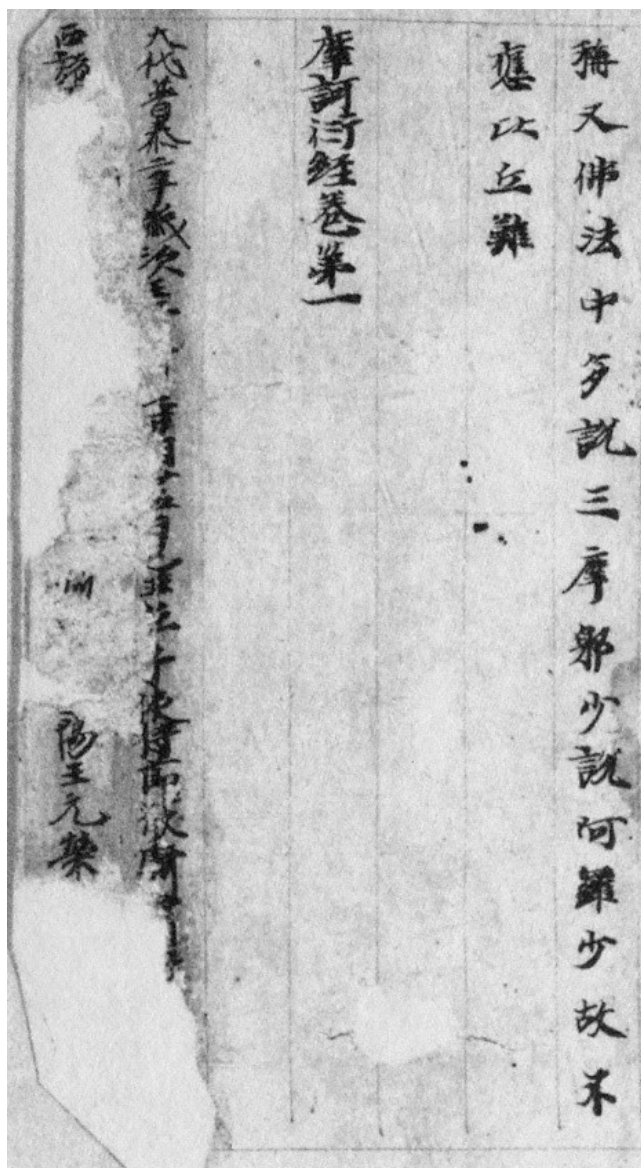 稱又佛法中多說三摩耶少說阿羅少故不
應比丘難
摩訶衍經卷第一
大代普泰二年歲次 月廿五日己丑弟子使持節散騎
西諸 州 陽王元榮